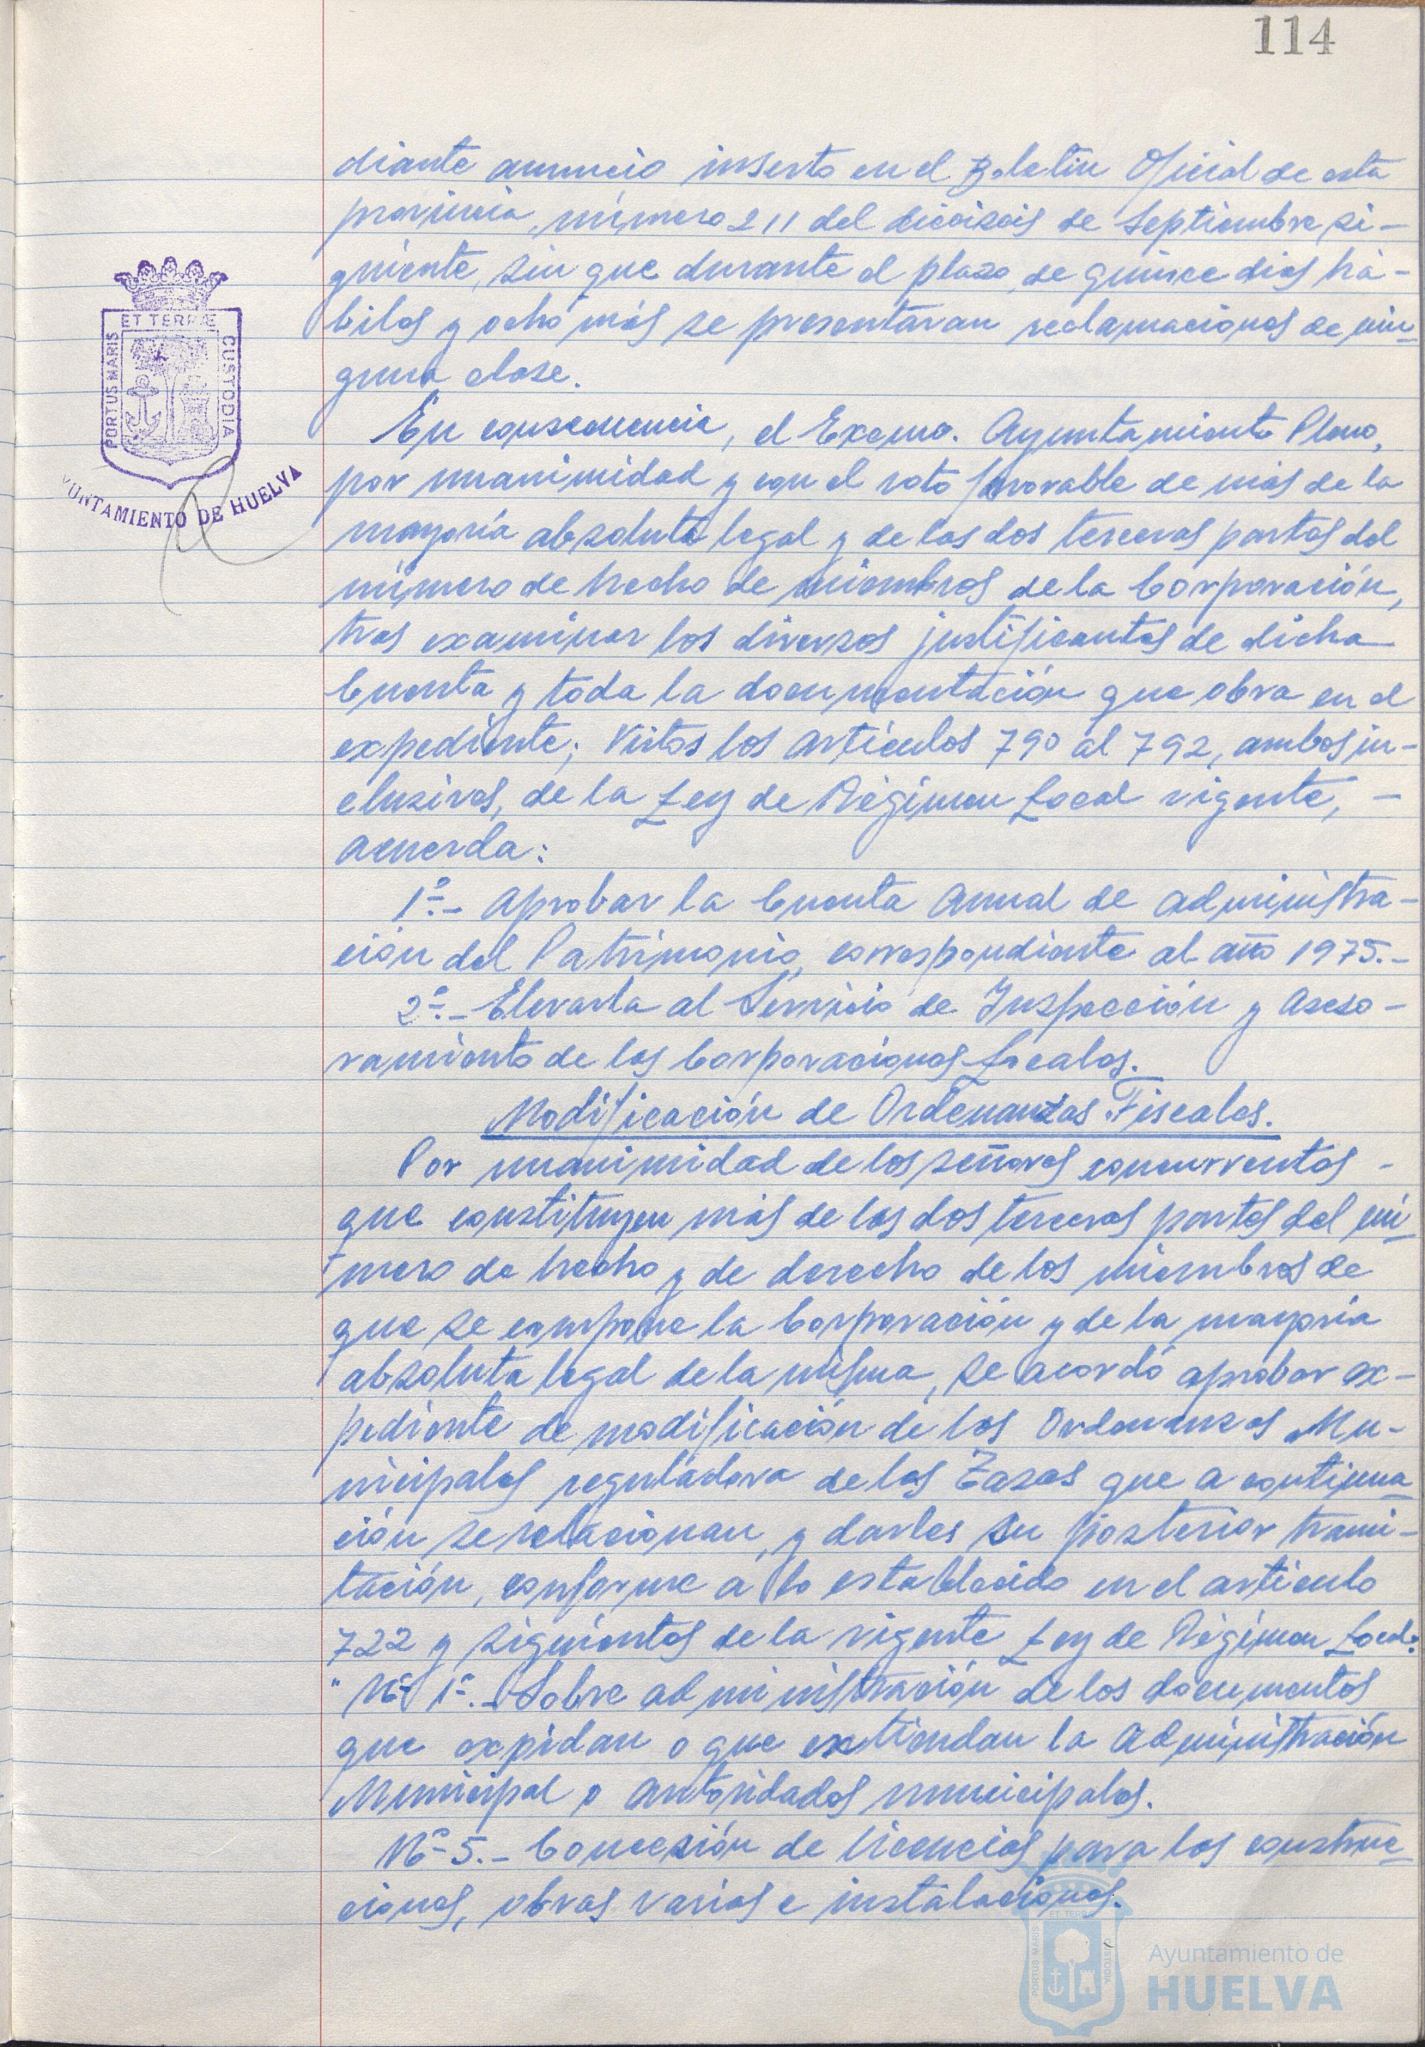 114
diante anuncio inserto en el Boletin Oficial de esta
provincia, número 211 del dieciseis de Septiembre si-
guiente, sin que durante el plazo de quince dias há-
biles y ocho más se presentaran reclamaciones de nin-
guna clase.
En consecuencia, el Excmo. Ayuntamiento Pleno,
por unanimidad y con el voto favorable de más de la
mayoría absoluta legal y de las dos terceras partes del
número de hecho de miembros de la Corporación,
tras examinar los diversos justificantes de dicha
Cuenta y toda la documentación que obra en el
expediente; Vistos los artículos 790 al 792, ambos in-
clusives, de la Ley de Régimen Local vigente, -
acuerda:
1º.- Aprobar la Cuenta Anual de Administra-
ción del Patrimonio, correspondiente al año 1975.-
2º.- Elevarla al Servicio de Inspección y Aseso-
ramiento de las Corporaciones Locales.
Modificación de Ordenanzas Fiscales.
Por unanimidad de los señores concurrentes -
que constituyen más de las dos terceras partes del nú
mero de hecho y de derecho de los miembros de
que se compone la Corporación y de la mayoría
absoluta legal de la misma, se acordó aprobar ex-
pediente de modificación de las Ordenanzas Mu-
nicipales reguladora de las Tasas que a continua
ción se relacionan, y darles su posterior trami-
tación, conforme a lo establecido en el artículo
722 y siguientes de la vigente Ley de Régimen Local:
"Nº 1º.- Sobre administración de los documentos
que expidan o que extiendan la Administración
Municipal o Autoridades municipales.
Nº 5.- Concesión de licencias para las construc
ciones, obras varias e instalaciones.
PORTUS MARIS ET TERRÆ CUSTODIA
AYUNTAMIENTO DE HUELVA
PORTUS MARIS ET TERRÆ CUSTODIA
Ayuntamiento de
HUELVA